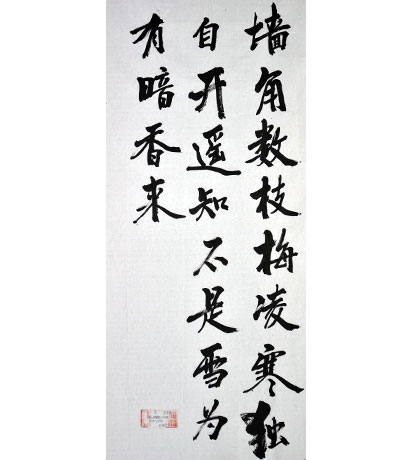 墙角数枝梅凌寒独
自开遥知不是雪为
有暗香来